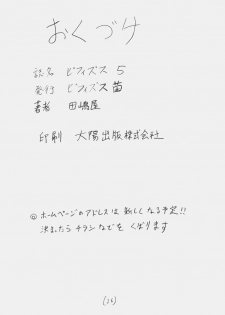 おくづけ
誌名 ビフィズス 5
発行 ビフィズス菌
著者 田嶋屋
印刷 大陽出版株式会社
◎ホームページのアドレスは新しくなる予定!!
決まったらチラシなどをくばります